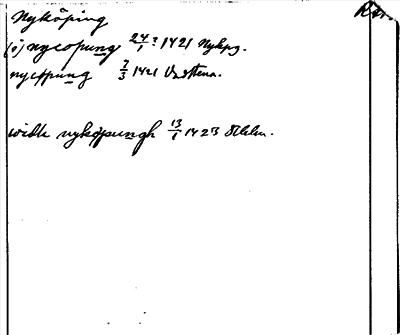 Nyköping
(i) nycopung 24/1? 1421 Nykpg.
nycøpung 2/3 1421 Vadstena.
widh nyköpungh 13/1 1423 Sthlm.